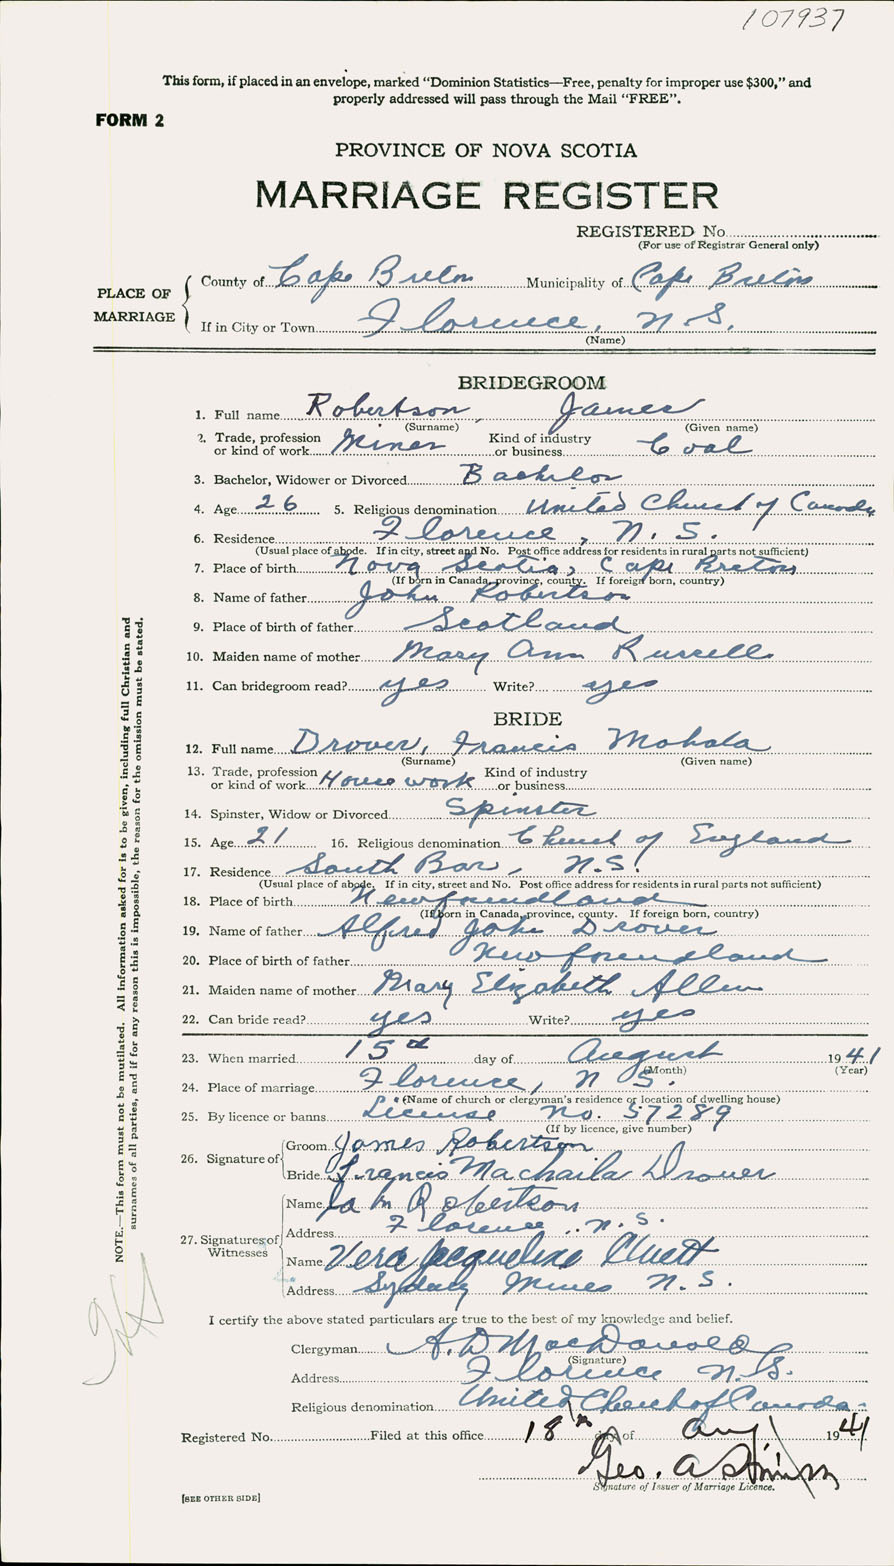 107937
This form, if placed in an envelope, marked "Dominion Statistics—Free, penalty for improper use $300," and
properly addressed will pass through the Mail "FREE".
FORM 2
PROVINCE OF NOVA SCOTIA
MARRIAGE REGISTER
REGISTERED No.
(For use of Registrar General only)
PLACE OF MARRIAGE
County of Cape Breton Municipality of Cape Breton
If in City or Town Florence, N.S.
(Name)
BRIDEGROOM
1. Full name Robertson, James
(Surname) (Given name)
2. Trade, profession or kind of work Miner Kind of industry or business Coal
3. Bachelor, Widower or Divorced Bachelor
4. Age 26 5. Religious denomination United Church of Canada
6. Residence Florence, N.S.
(Usual place of abode. If in city, street and No. Post office address for residents in rural parts not sufficient)
7. Place of birth Nova Scotia, Cape Breton
(If born in Canada, province, county. If foreign born, country)
8. Name of father John Robertson
9. Place of birth of father Scotland
10. Maiden name of mother Mary Ann Russell
11. Can bridegroom read? yes Write? yes
BRIDE
12. Full name Drover, Francis Mahala
(Surname) (Given name)
13. Trade, profession or kind of work Housework Kind of industry or business
14. Spinster, Widow or Divorced Spinster
15. Age 21 16. Religious denomination Church of England
17. Residence South Bar, N.S.
(Usual place of abode. If in city, street and No. Post office address for residents in rural parts not sufficient)
18. Place of birth Newfoundland
(If born in Canada, province, county. If foreign born, country)
19. Name of father Alfred John Drover
20. Place of birth of father Newfoundland
21. Maiden name of mother Mary Elizabeth Allen
22. Can bride read? yes Write? yes
23. When married 15th day of August 1941
(Month) (Year)
24. Place of marriage Florence, N.S.
(Name of church or clergyman's residence or location of dwelling house)
25. By licence or banns License No. 57289
(If by licence, give number)
26. Signature of
Groom James Robertson
Bride Francis Machaila Drover
27. Signatures of Witnesses
Name Robertson
Address Florence N.S.
Name Vera Jacqueline Cluett
Address Sydney Mines N.S.
I certify the above stated particulars are true to the best of my knowledge and belief.
Clergyman A. D MacDonald
(Signature)
Address Florence N.S.
Religious denomination United Church of Canada
Registered No. Filed at this office 18th day of Aug 1941
Geo. A
Signature of Issuer of Marriage Licence.
[SEE OTHER SIDE]
NOTE.—This form must not be mutilated. All information asked for is to be given, including full Christian and
surnames of all parties, and if for any reason this is impossible, the reason for the omission must be stated.